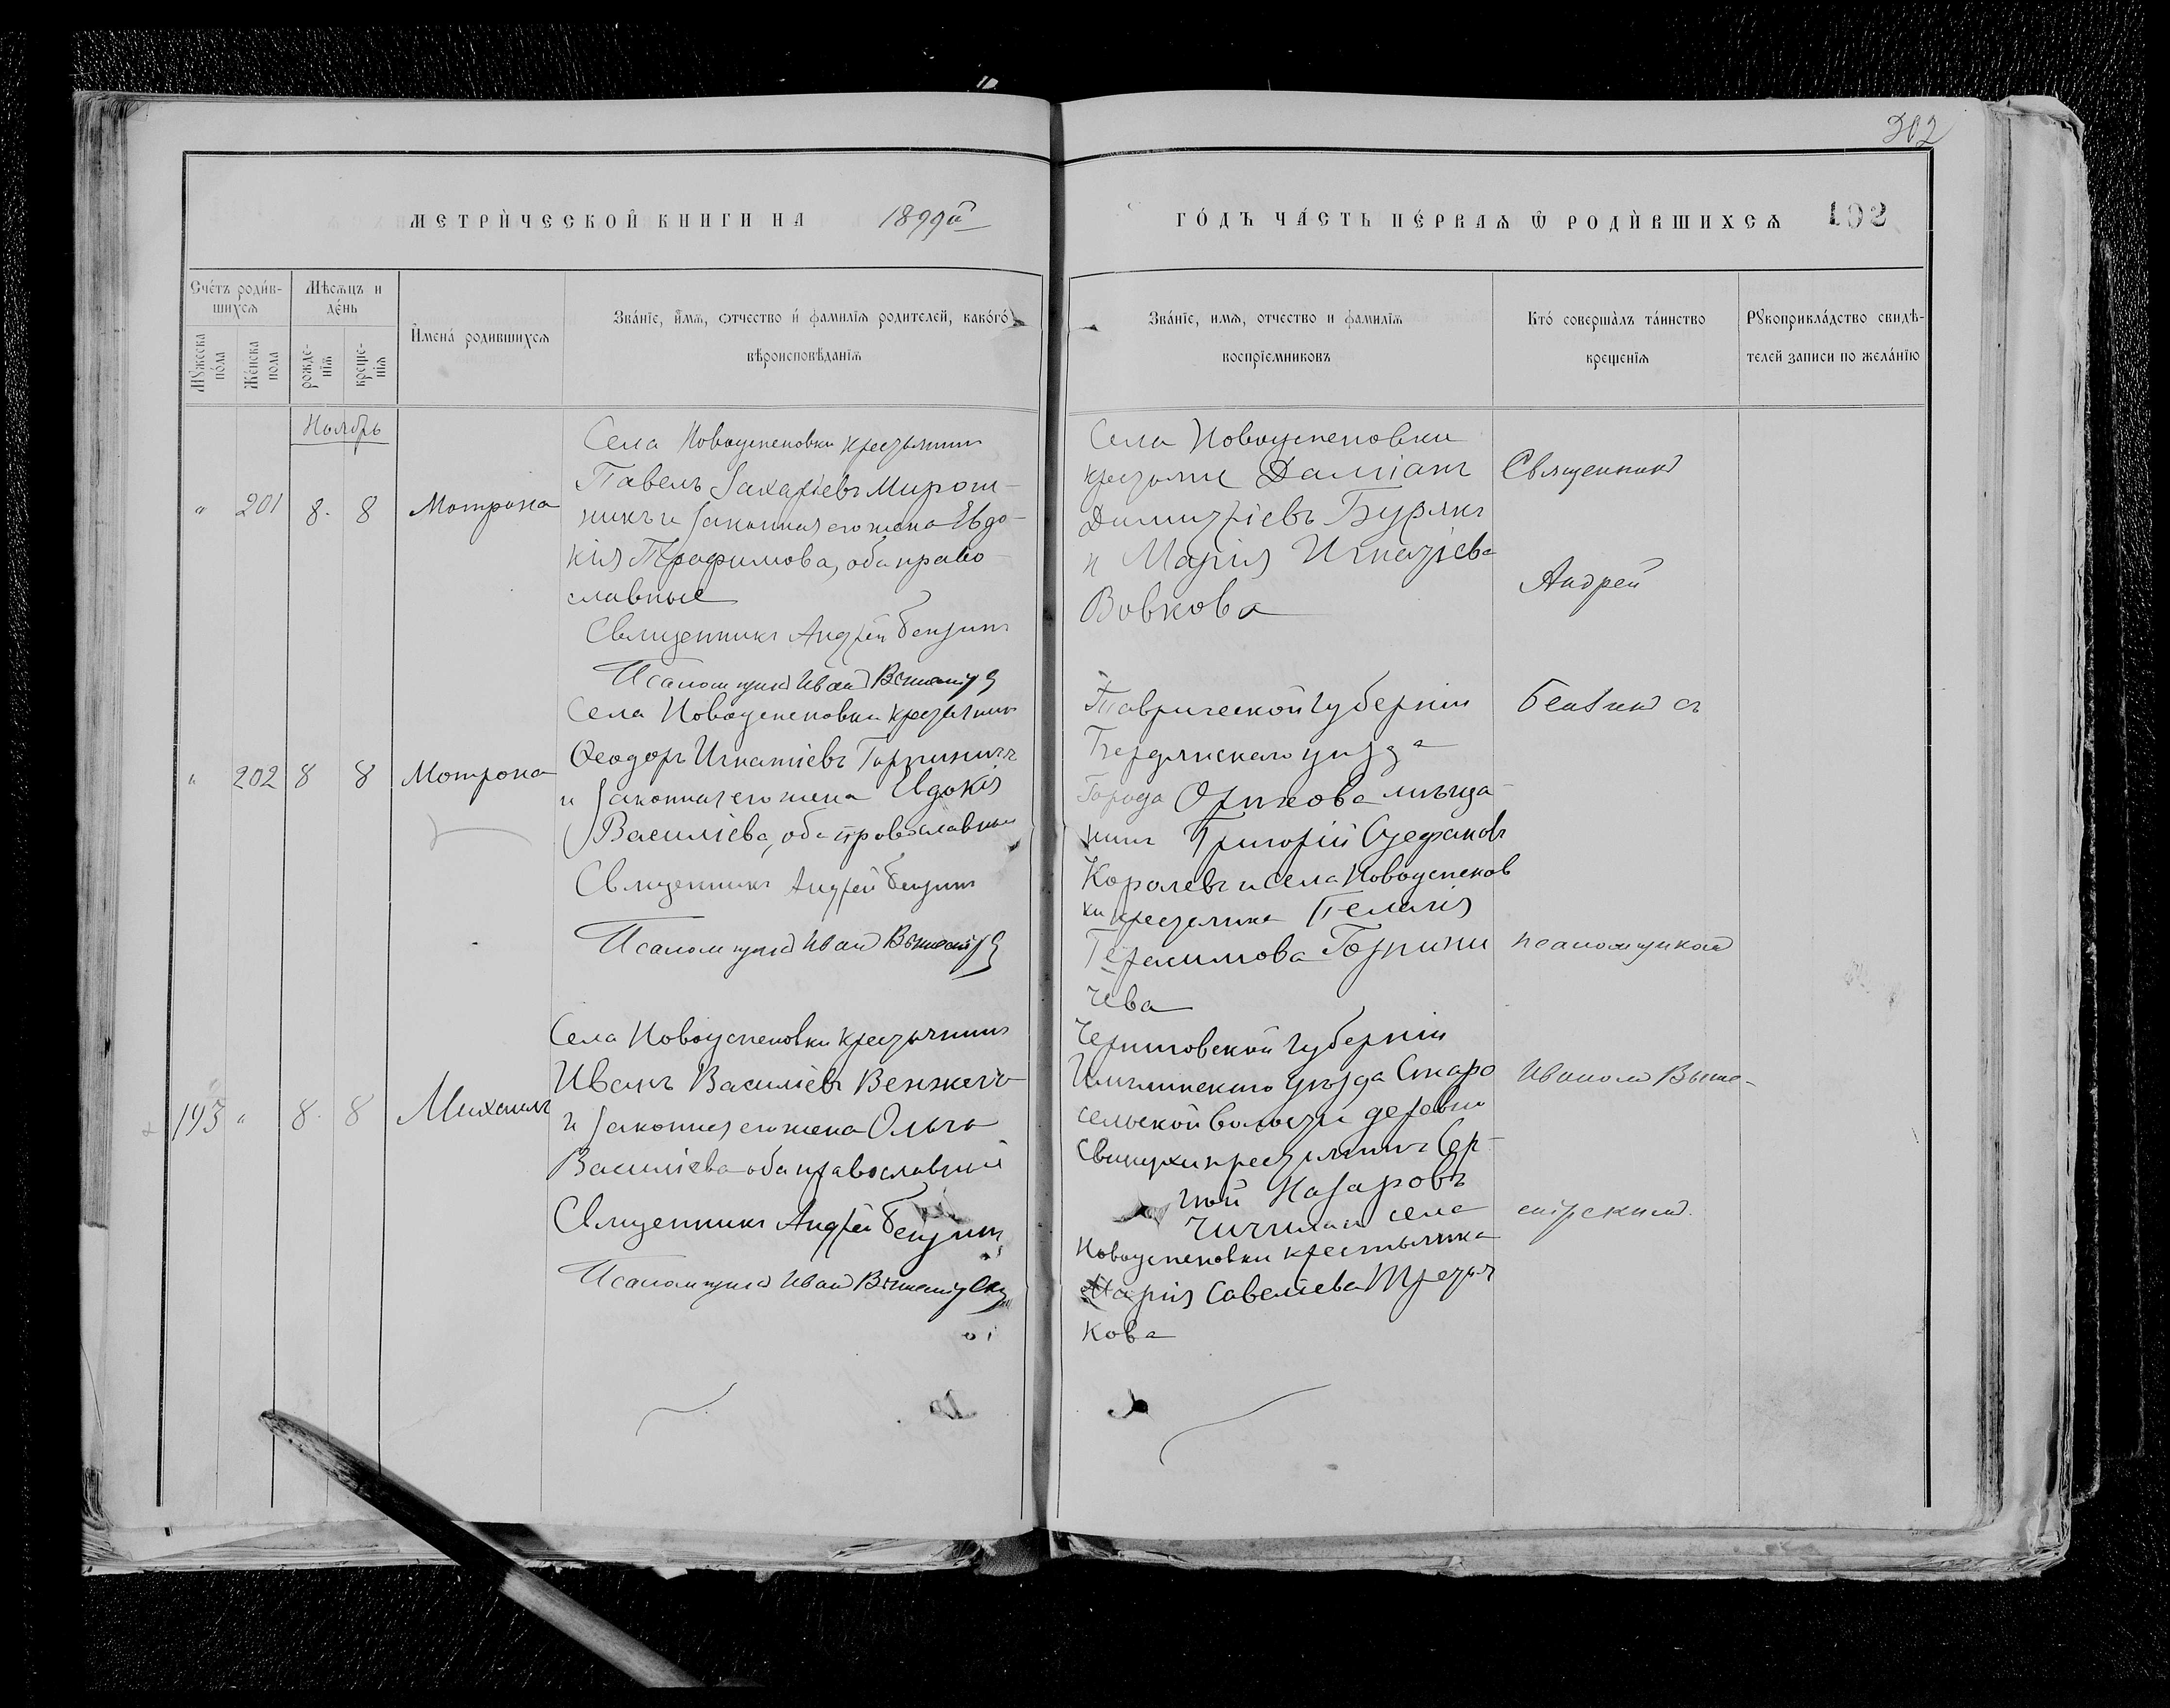 302
МЕТРИ́ЧЕСКОЙ КНИГИ НА 1899й
ГО́ДЪ ЧА́СТЬ ПЕ́РВАѦ Ѿ РОДИ́ВШИХСѦ 102
Сче́тъ роди́в-
шихсѧ
Мѣсѧцъ и
де́нь
Мꙋжеска
по́ла
Же́нска
пола
рожде-
нїѧ
креще-
нїѧ
Имена́ родившихсѧ
Зва́нїе, и́мѧ, ѻтчество и фамилїѧ родителей, како́го
вѣроисповѣ́данїѧ
Зва́нїе, имѧ, отчество и фамилїѧ
воспрїемниковъ
Кто́ соверша́лъ та́инство
крещенїѧ
Рꙋкоприкла́дство свидѣ-
телей записи по жела́нїю
Ноябрь
" 201 8. 8 Мотрона
Села Новоуспеновки крестьянинъ
Павелъ Захаріевъ Мирош-
никъ и законная его жена Евдо-
кія Трофимова, оба право-
славные
Священникъ Андрей
Псаломщикъ Иван
Села Новоуспеновки
крестьяне Даміанъ
Димитріевъ Бурякъ
и Марія Игнатіева
Вовкова
Священникъ
Андрей
" 202 8 8 Мотрона
Села Новоуспеновки крестьянинъ
Ѳеодоръ Игнатіевъ
и законная его жена Евдокія
Василіева, оба православные
Священникъ Андрей
Псаломщикъ Иван
Таврической губерніи
Бердянскаго уѣзда
Города Орѣхова мѣща-
нинъ Григорій Стефановъ
Королевъ и села Новоуспенов
ки крестьянка Пелагія
Герасимова Горпини
чева
съ
псаломщикомъ
193 " 8. 8 Михаилъ
Села Новоуспеновки крестьянинъ
Иванъ Василіевъ
и законная его жена Ольга
Василіева оба православные
Священникъ Андрей
Псаломщикъ Иван
Черниговской губерніи
уѣзда Старо
сельской волости деревни
Свинухи крестьянинъ Сер-
гій Назаровъ
села
Новоуспеновки крестьянка
Марія Савеліева Третья
кова
Иваномъ Выше-